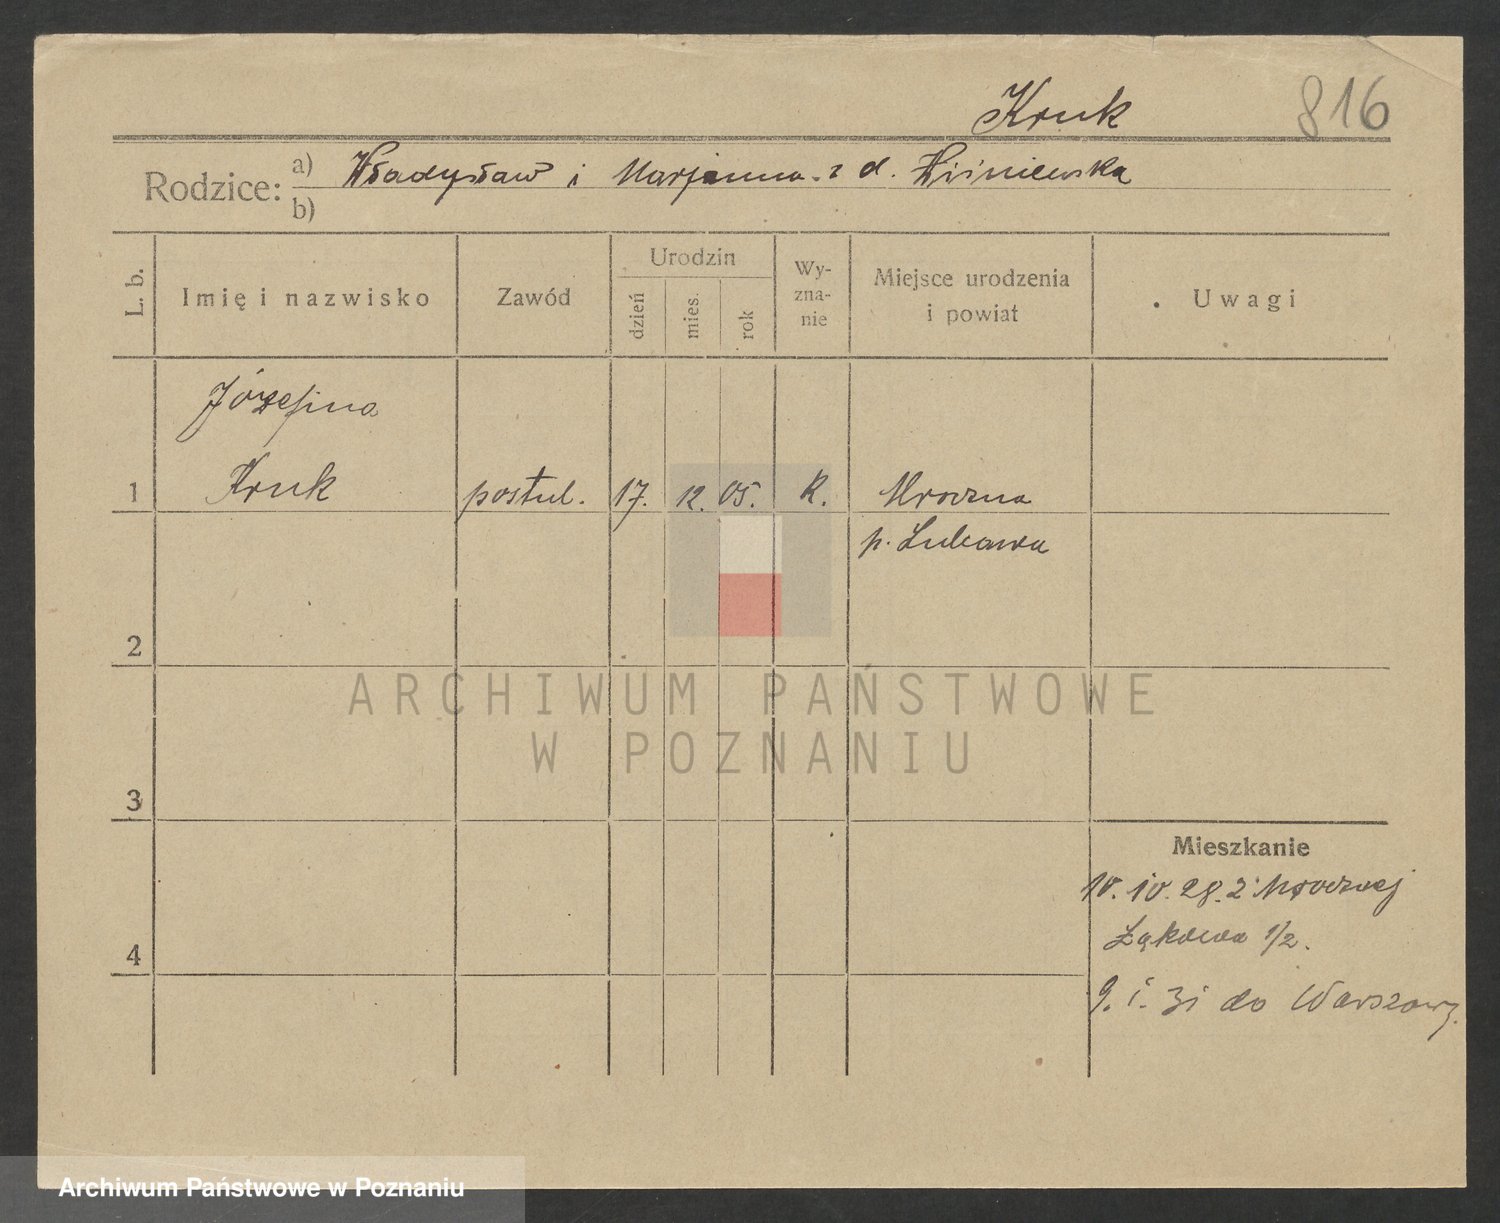 Kruk 816
Rodzice: a) Władysław i Marjanna z d. Wiśniewska
b)
L. b.
Imię i nazwisko
Zawód
Urodzin
dzień
mies.
rok
Wy-
zna-
nie
Miejsce urodzenia
i powiat
Uwagi
Józefina
1 Kruk postul. 17. 12. 05. K. Mroczna
p. Lubawa
2
ARCHIWUM PAŃSTWOWE
W POZNANIU
3
Mieszkanie
10. 10. 28. z Mrocznej
4 Łąkowa 1/2.
9. i. 31 do Warszawy.
Archiwum Państwowe w Poznaniu